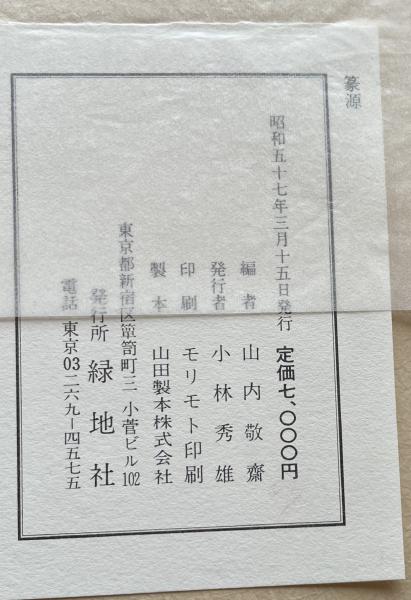 篆源
昭和五十七年三月十五日発行 定価七、〇〇〇円
編者 山内敬齋
発行者 小林秀雄
印刷 モリモト印刷
製本 山田製本株式会社
東京都新宿区箪笥町三 小菅ビル102
発行所 緑地社
電話 東京03 二六九−四五七五